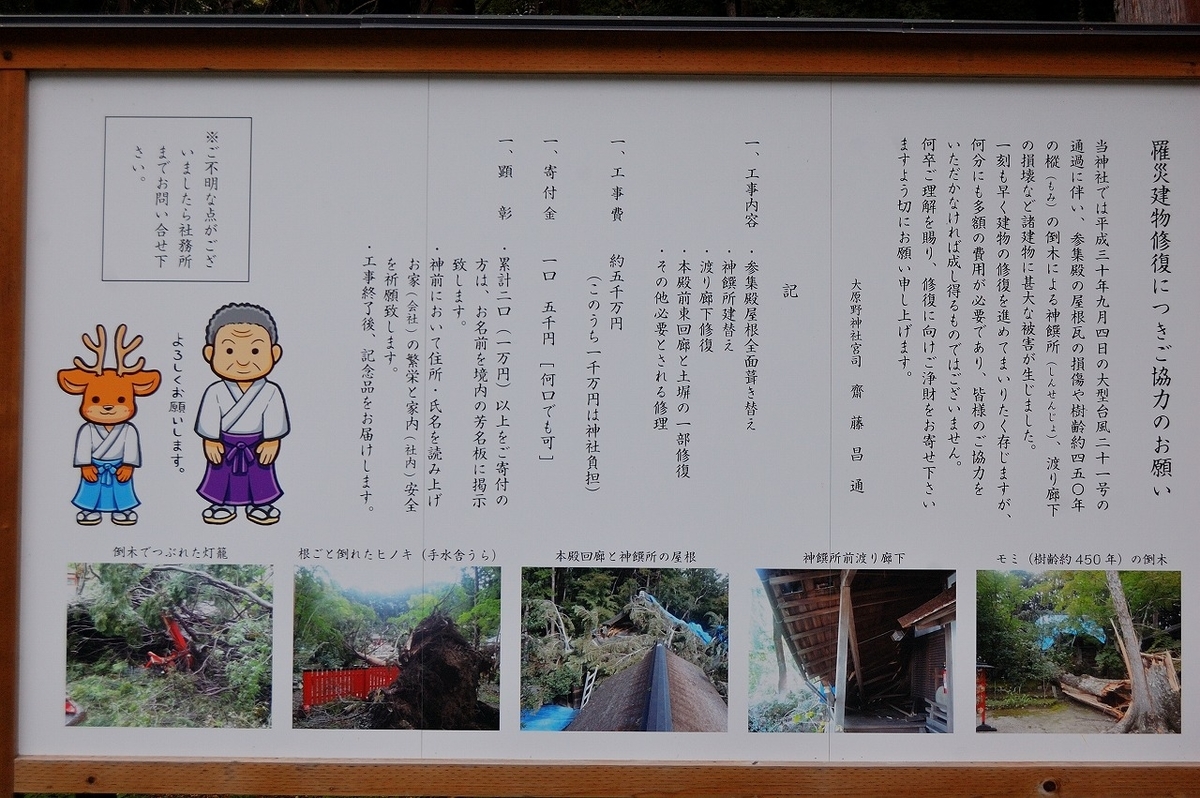 罹災建物修復につきご協力のお願い
当神社では平成三十年九月四日の大型台風二十一号の
通過に伴い、参集殿の屋根瓦の損傷や樹齢約四五〇年
の樅（もみ）の倒木による神饌所（しんせんじょ）、渡り廊下
の損壊など諸建物に甚大な被害が生じました。
一刻も早く建物の修復を進めてまいりたく存じますが、
何分にも多額の費用が必要であり、皆様のご協力を
いただかなければ成し得るものではございません。
何卒ご理解を賜り、修復に向けご浄財をお寄せ下さい
ますよう切にお願い申し上げます。
大原野神社宮司　齋藤昌通
記
一、工事内容　・参集殿屋根全面葺き替え
・神饌所建替え
・渡り廊下修復
・本殿前東回廊と土塀の一部修復
・その他必要とされる修理
一、工事費　約五千万円
（このうち一千万円は神社負担）
一、寄付金　一口　五千円　［何口でも可］
一、顕彰　・累計二口（一万円）以上をご寄付の
方は、お名前を境内の芳名板に掲示
致します。
・神前において住所・氏名を読み上げ
お家（会社）の繁栄と家内（社内）安全
を祈願致します。
・工事終了後、記念品をお届けします。
※ご不明な点がござ
いましたら社務所
までお問い合せ下
さい。
よろしくお願いします。
モミ（樹齢約450年）の倒木
神饌所前渡り廊下
本殿回廊と神饌所の屋根
根ごと倒れたヒノキ（手水舎うら）
倒木でつぶれた灯籠